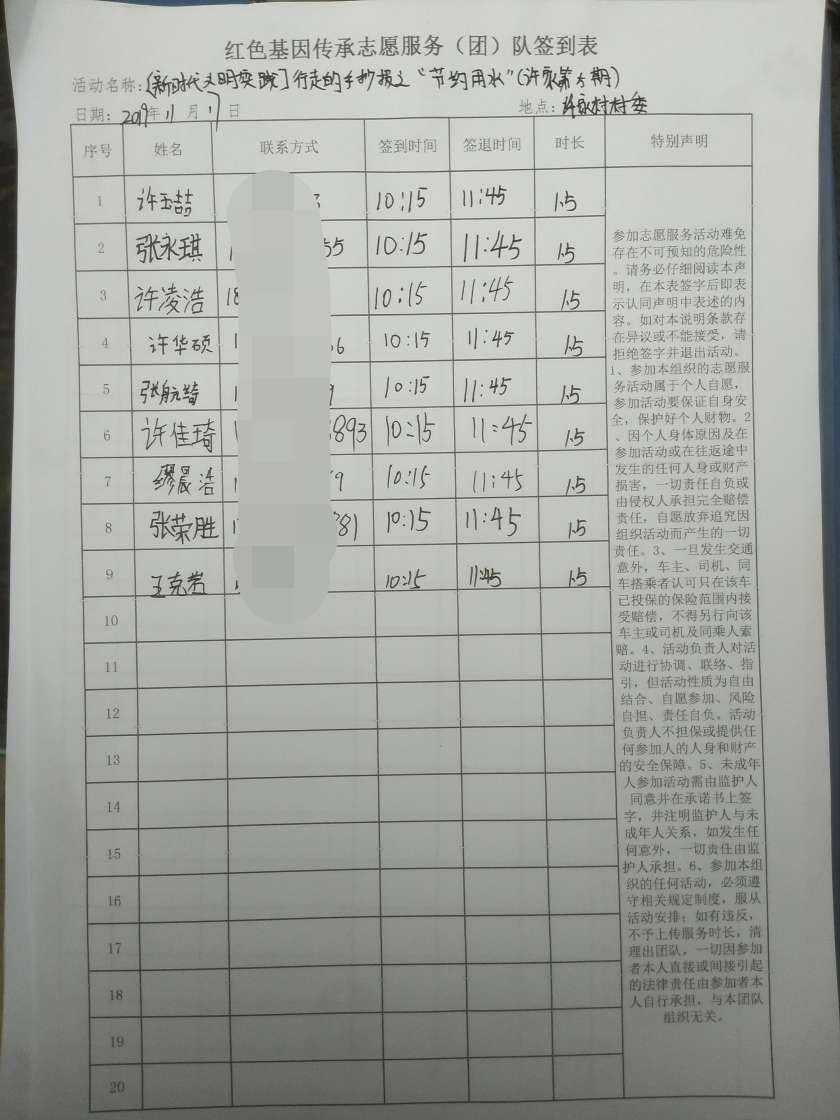 红色基因传承志愿服务（团）队签到表
活动名称：[新时代文明实践]行走的手抄报之“节约用水”(许家第5期)
日期：2019年11月17日 地点：许家村村委
序号 姓名 联系方式 签到时间 签退时间 时长 特别声明
1 许玉喆 10:15 11:45 1.5
2 张永琪 1 55 10:15 11:45 1.5
3 许凌浩 18 10:15 11:45 1.5
4 许华硕 1 6 10:15 11:45 1.5
5 张航 1 9 10:15 11:45 1.5
6 许佳琦 1 893 10:15 11:45 1.5
7 缪晨浩 1 9 10:15 11:45 1.5
8 张荣胜 1 81 10:15 11:45 1.5
9 王克岩 10:15 11:45 1.5
10
11
12
13
14
15
16
17
18
19
20
参加志愿服务活动难免
存在不可预知的危险性
。请务必仔细阅读本声
明，在本表签字后即表
示认同声明中表述的内
容。如对本说明条款存
在异议或不能接受，请
拒绝签字并退出活动。
1、参加本组织的志愿服
务活动属于个人自愿，
参加活动要保证自身安
全，保护好个人财物。2
、因个人身体原因及在
参加活动或在往返途中
发生的任何人身或财产
损害，一切责任自负或
由侵权人承担完全赔偿
责任，自愿放弃追究因
组织活动而产生的一切
责任。3、一旦发生交通
意外，车主、司机、同
车搭乘者认可只在该车
已投保的保险范围内接
受赔偿，不得另行向该
车主或司机及同乘人索
赔。4、活动负责人对活
动进行协调、联络、指
引，但活动性质为自由
结合、自愿参加、风险
自担、责任自负。活动
负责人不担保或提供任
何参加人的人身和财产
的安全保障。5、未成年
人参加活动需由监护人
同意并在承诺书上签
字，并注明监护人与未
成年人关系，如发生任
何意外，一切责任由监
护人承担。6、参加本组
织的任何活动，必须遵
守相关规定制度，服从
活动安排；如有违反，
不予上传服务时长，清
理出团队，一切因参加
者本人直接或间接引起
的法律责任由参加者本
人自行承担，与本团队
组织无关。